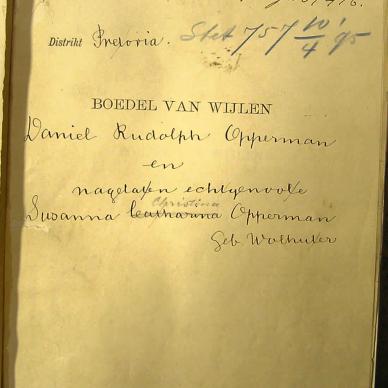 Distrikt Pretoria. Stet 757 10/4 '95
BOEDEL VAN WIJLEN
Daniel Rudolph Opperman
en
nagelaten echtgenoote
Christina
Susanna Catharina Opperman
Geb. Wolhuter